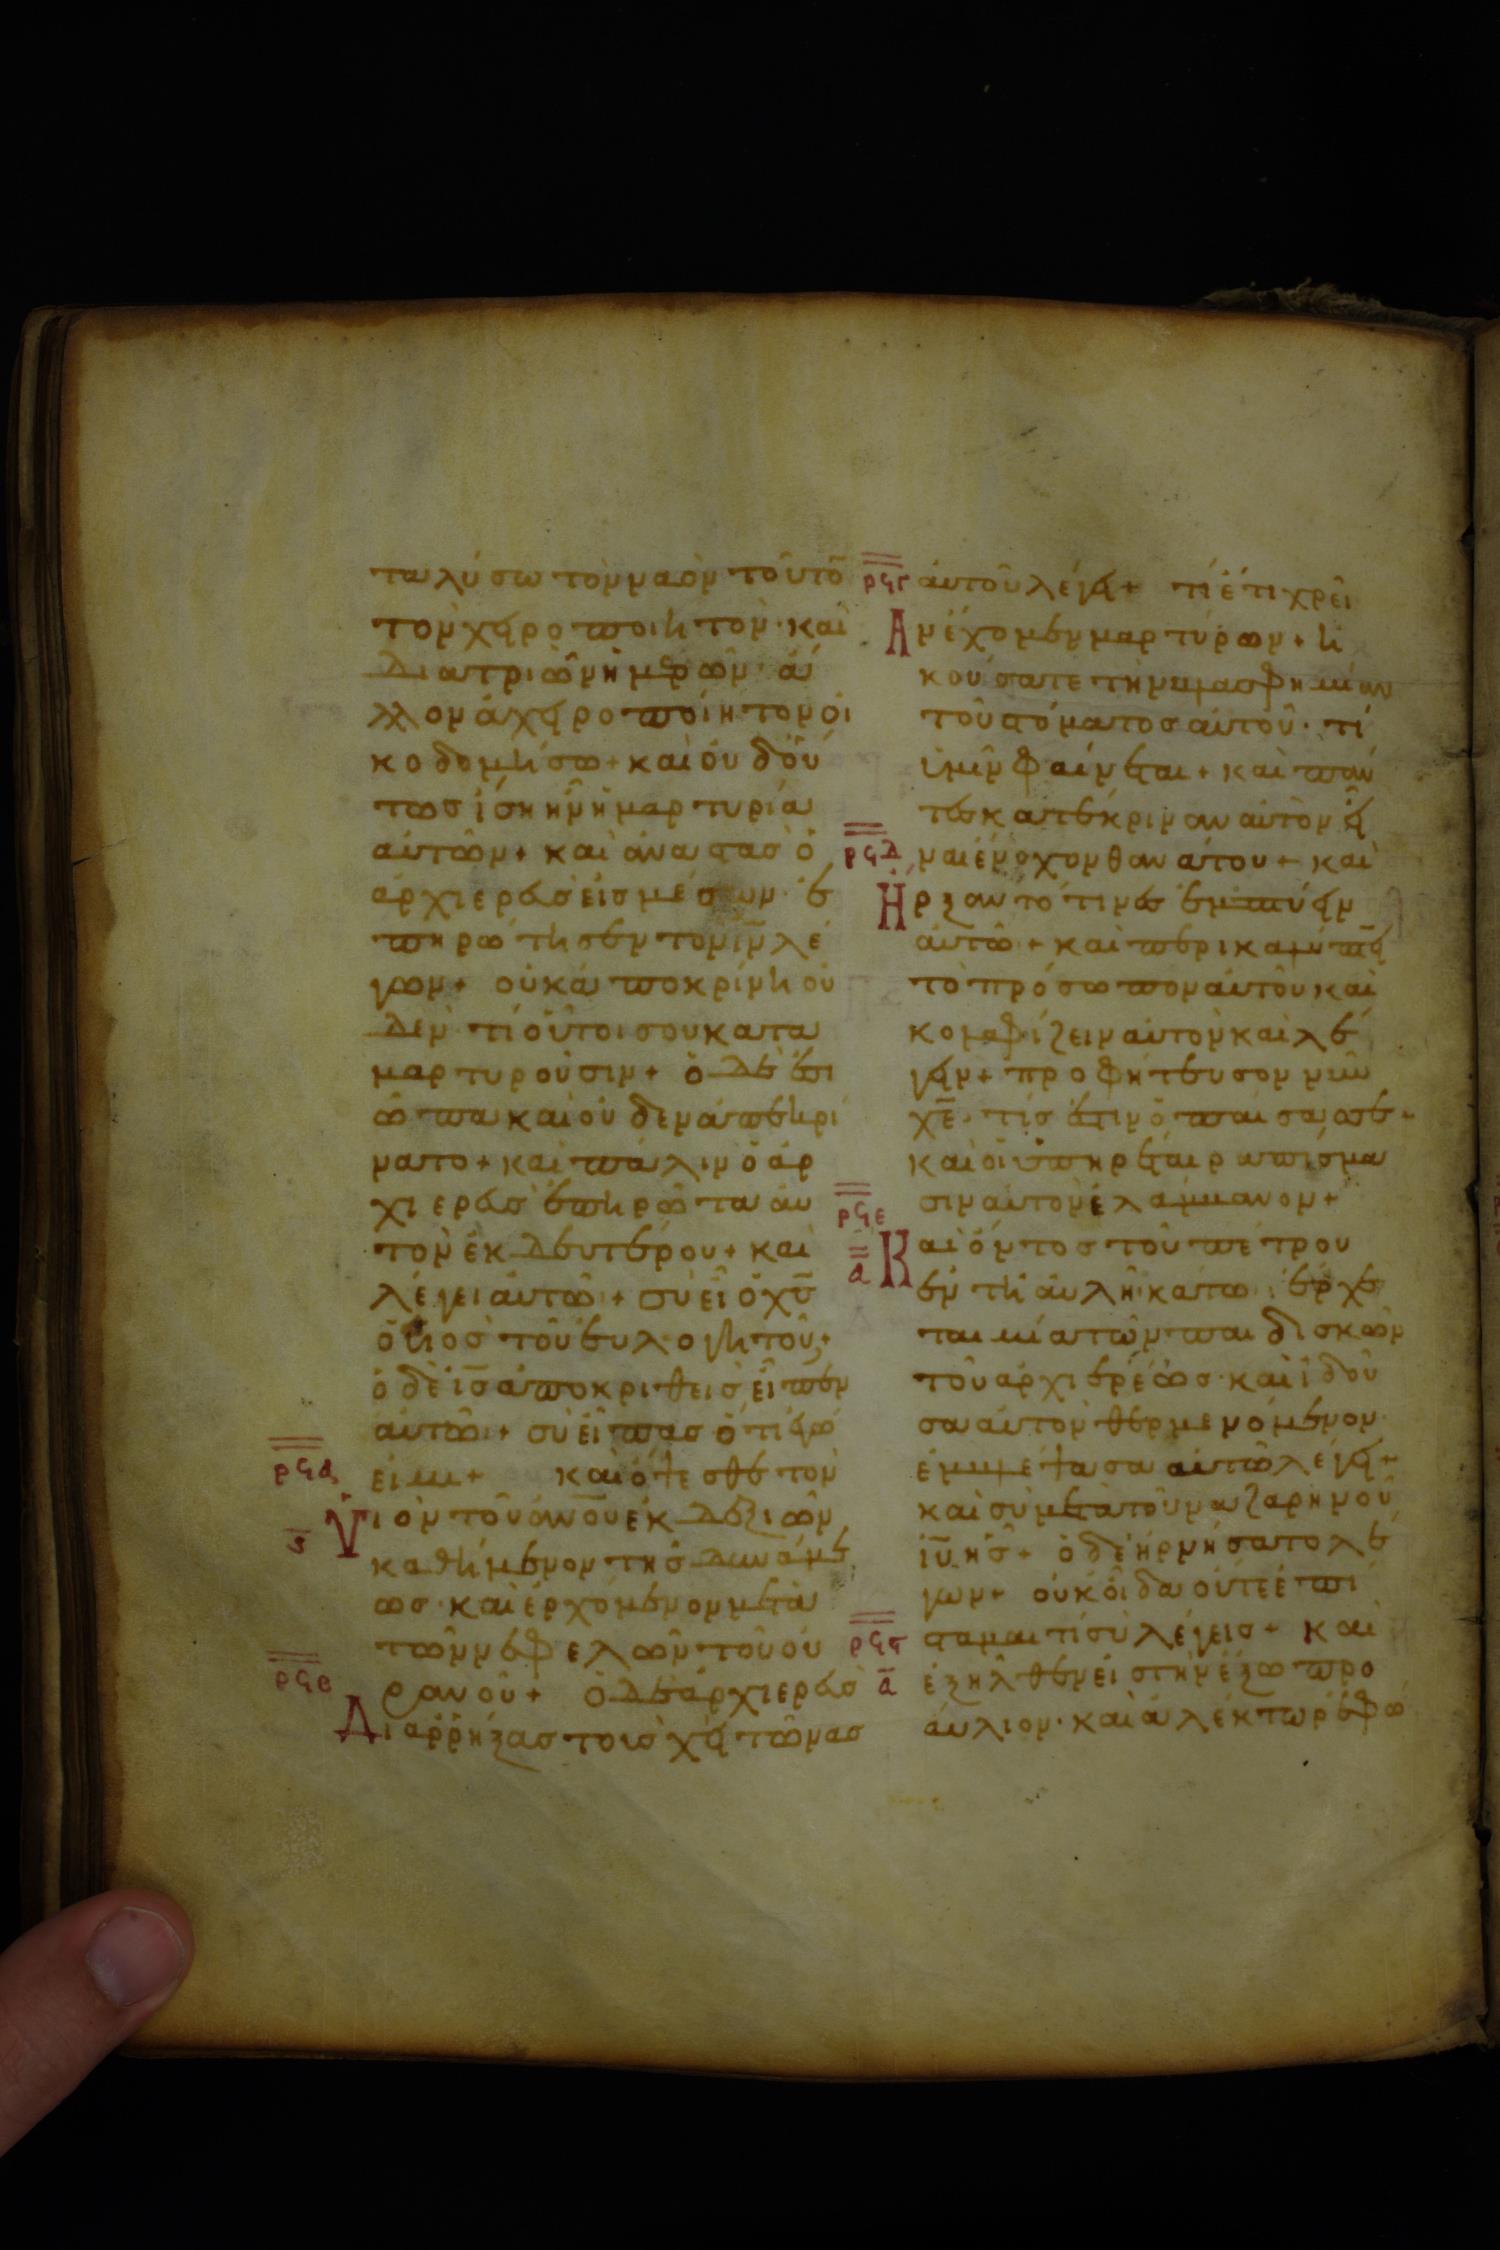 ταλύσω τὸν ναὸν τοῦτο
τὸν χειροποιητον· καὶ
διατριῶν ἡμερῶν ἀ
λλον ἀχειροποίητον οἰ
κοδομήσω + καὶ οὐδ οὕ
τως ἴση ἦν ἡ μαρτυρία
αὐτῶν + καὶ ἀναστὰς ὁ
ἀρχιερεὺς εἰς μέσον· ἐ
πηρώτησεν τὸν ιν λέ
γων + οὐκ ἀποκρίνη οὐ
δεν τί οὗτοι σου κατα
μαρτυροῦσιν + ὁ δὲ ἐσι
ώπα καὶ οὐδὲν ἀπεκρί
νατο + καὶ πάλιν ὁ ἀρ
χιερεὺς ἐπηρώτα αὐ
τὸν ἐκ δευτέρου + καὶ
λέγει αὐτῶ + σὺ εἶ ὁ χς
ὁ υιος τοῦ εὐλογητοῦ +
ὁ δὲ ις ἀποκριθεὶς εἶπεν
αὐτῶ + σὺ εἶπας ὅτι ἐγώ
ρϟα
εἰμι + καὶ ὄψεσθε τὸν
ϛ
Υἱὸν τοῦ ἀνου ἐκ δεξιῶν
καθήμενον τῆς δυνάμε
ως· καὶ ἐρχόμενον μετὰ
τῶν νεφελῶν τοῦ οὐ
ρϟβ
ρανοῦ + ὁ δὲ ἀρχιερεὺς
Διαῤῥήξας τοὺς χιτῶνας
ρϟγ
αὐτοῦ λέγει + τί ἔτι χρεί
Αν ἔχομεν μαρτύρων + ἠ
κούσατε τὴν βλασφημίαν
τοῦ στόματος αὐτοῦ· τί
ὑμῖν φαίνεται + καὶ πάν
τες κατέκριναν αὐτὸν εἶ
ρϟδ
ναι ἔνοχον θανάτου + καὶ
Ἤρξαντό τινες ἐμπτύειν
αὐτῶ + καὶ περικαλύπτει
τὸ πρόσωπον αὐτοῦ καὶ
κολαφίζειν αὐτὸν καὶ λέ
γειν + προφήτευσον ημῖν
χε· τίς ἐστιν ὁ παίσας σε·
καὶ οἱ ὑπηρέται ραπίσμα
σιν αὐτὸν ἔλαμβανον +
ρϟε
α
Καὶ ὄντος τοῦ πέτρου
ἐν τῆ αὐλῆ κάτω· ἔρχε
ται μία τῶν παιδισκῶν
τοῦ ἀρχιερέως· καὶ ἰδοῦ
σα αὐτὸν θερμενόμενον·
ἐμβλέψασα αὐτῶ λέγει +
καὶ σὺ μετὰ τοῦ ναζαρηνοῦ
ιυ ἦς + ὁ δὲ ἠρνήσατο λέ
γων + οὐκ οἶδα οὔτε ἐπί
ρϟϛ
σταμαι τί σὺ λέγεις + καὶ
α
ἐξῆλθεν εἰς τὴν ἔξω προ
αύλιον· καὶ ἀλέκτωρ ἐφώ